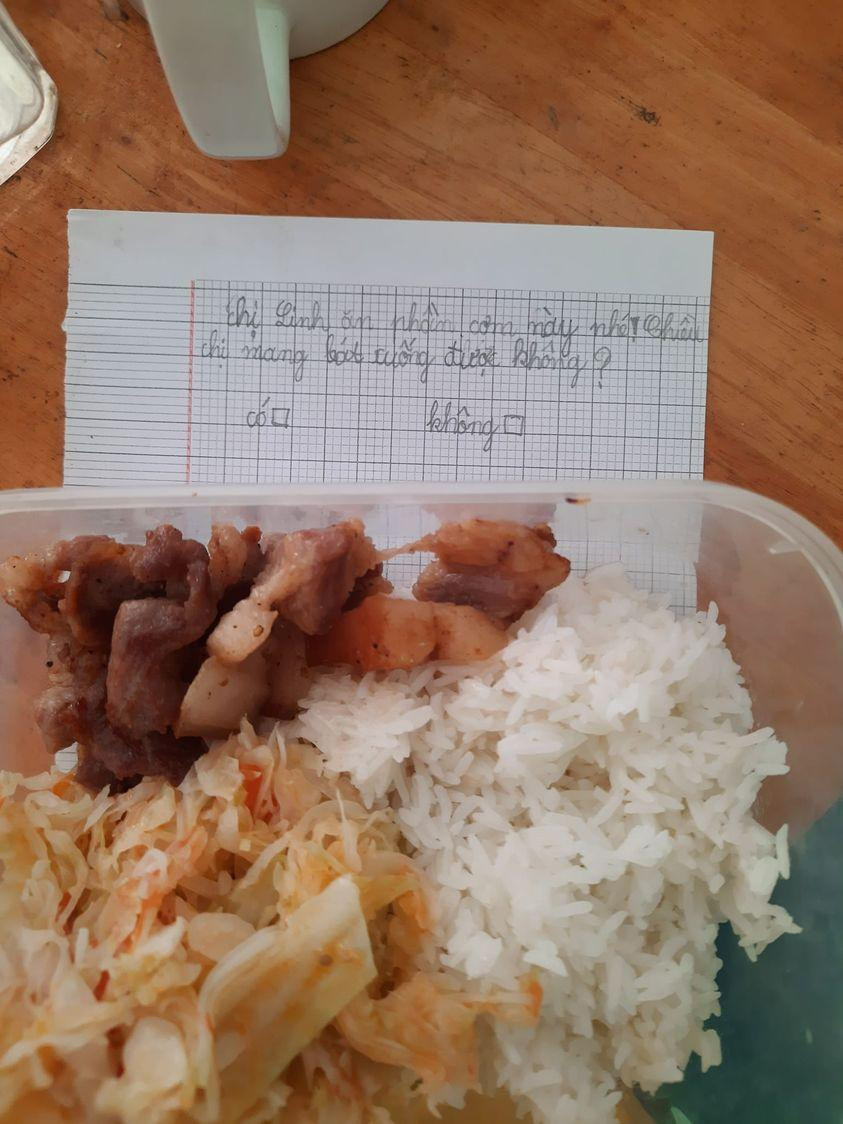 chị Linh ăn phần cơm này nhé! Chiều
chị mang bát xuống được không?
có □ không □